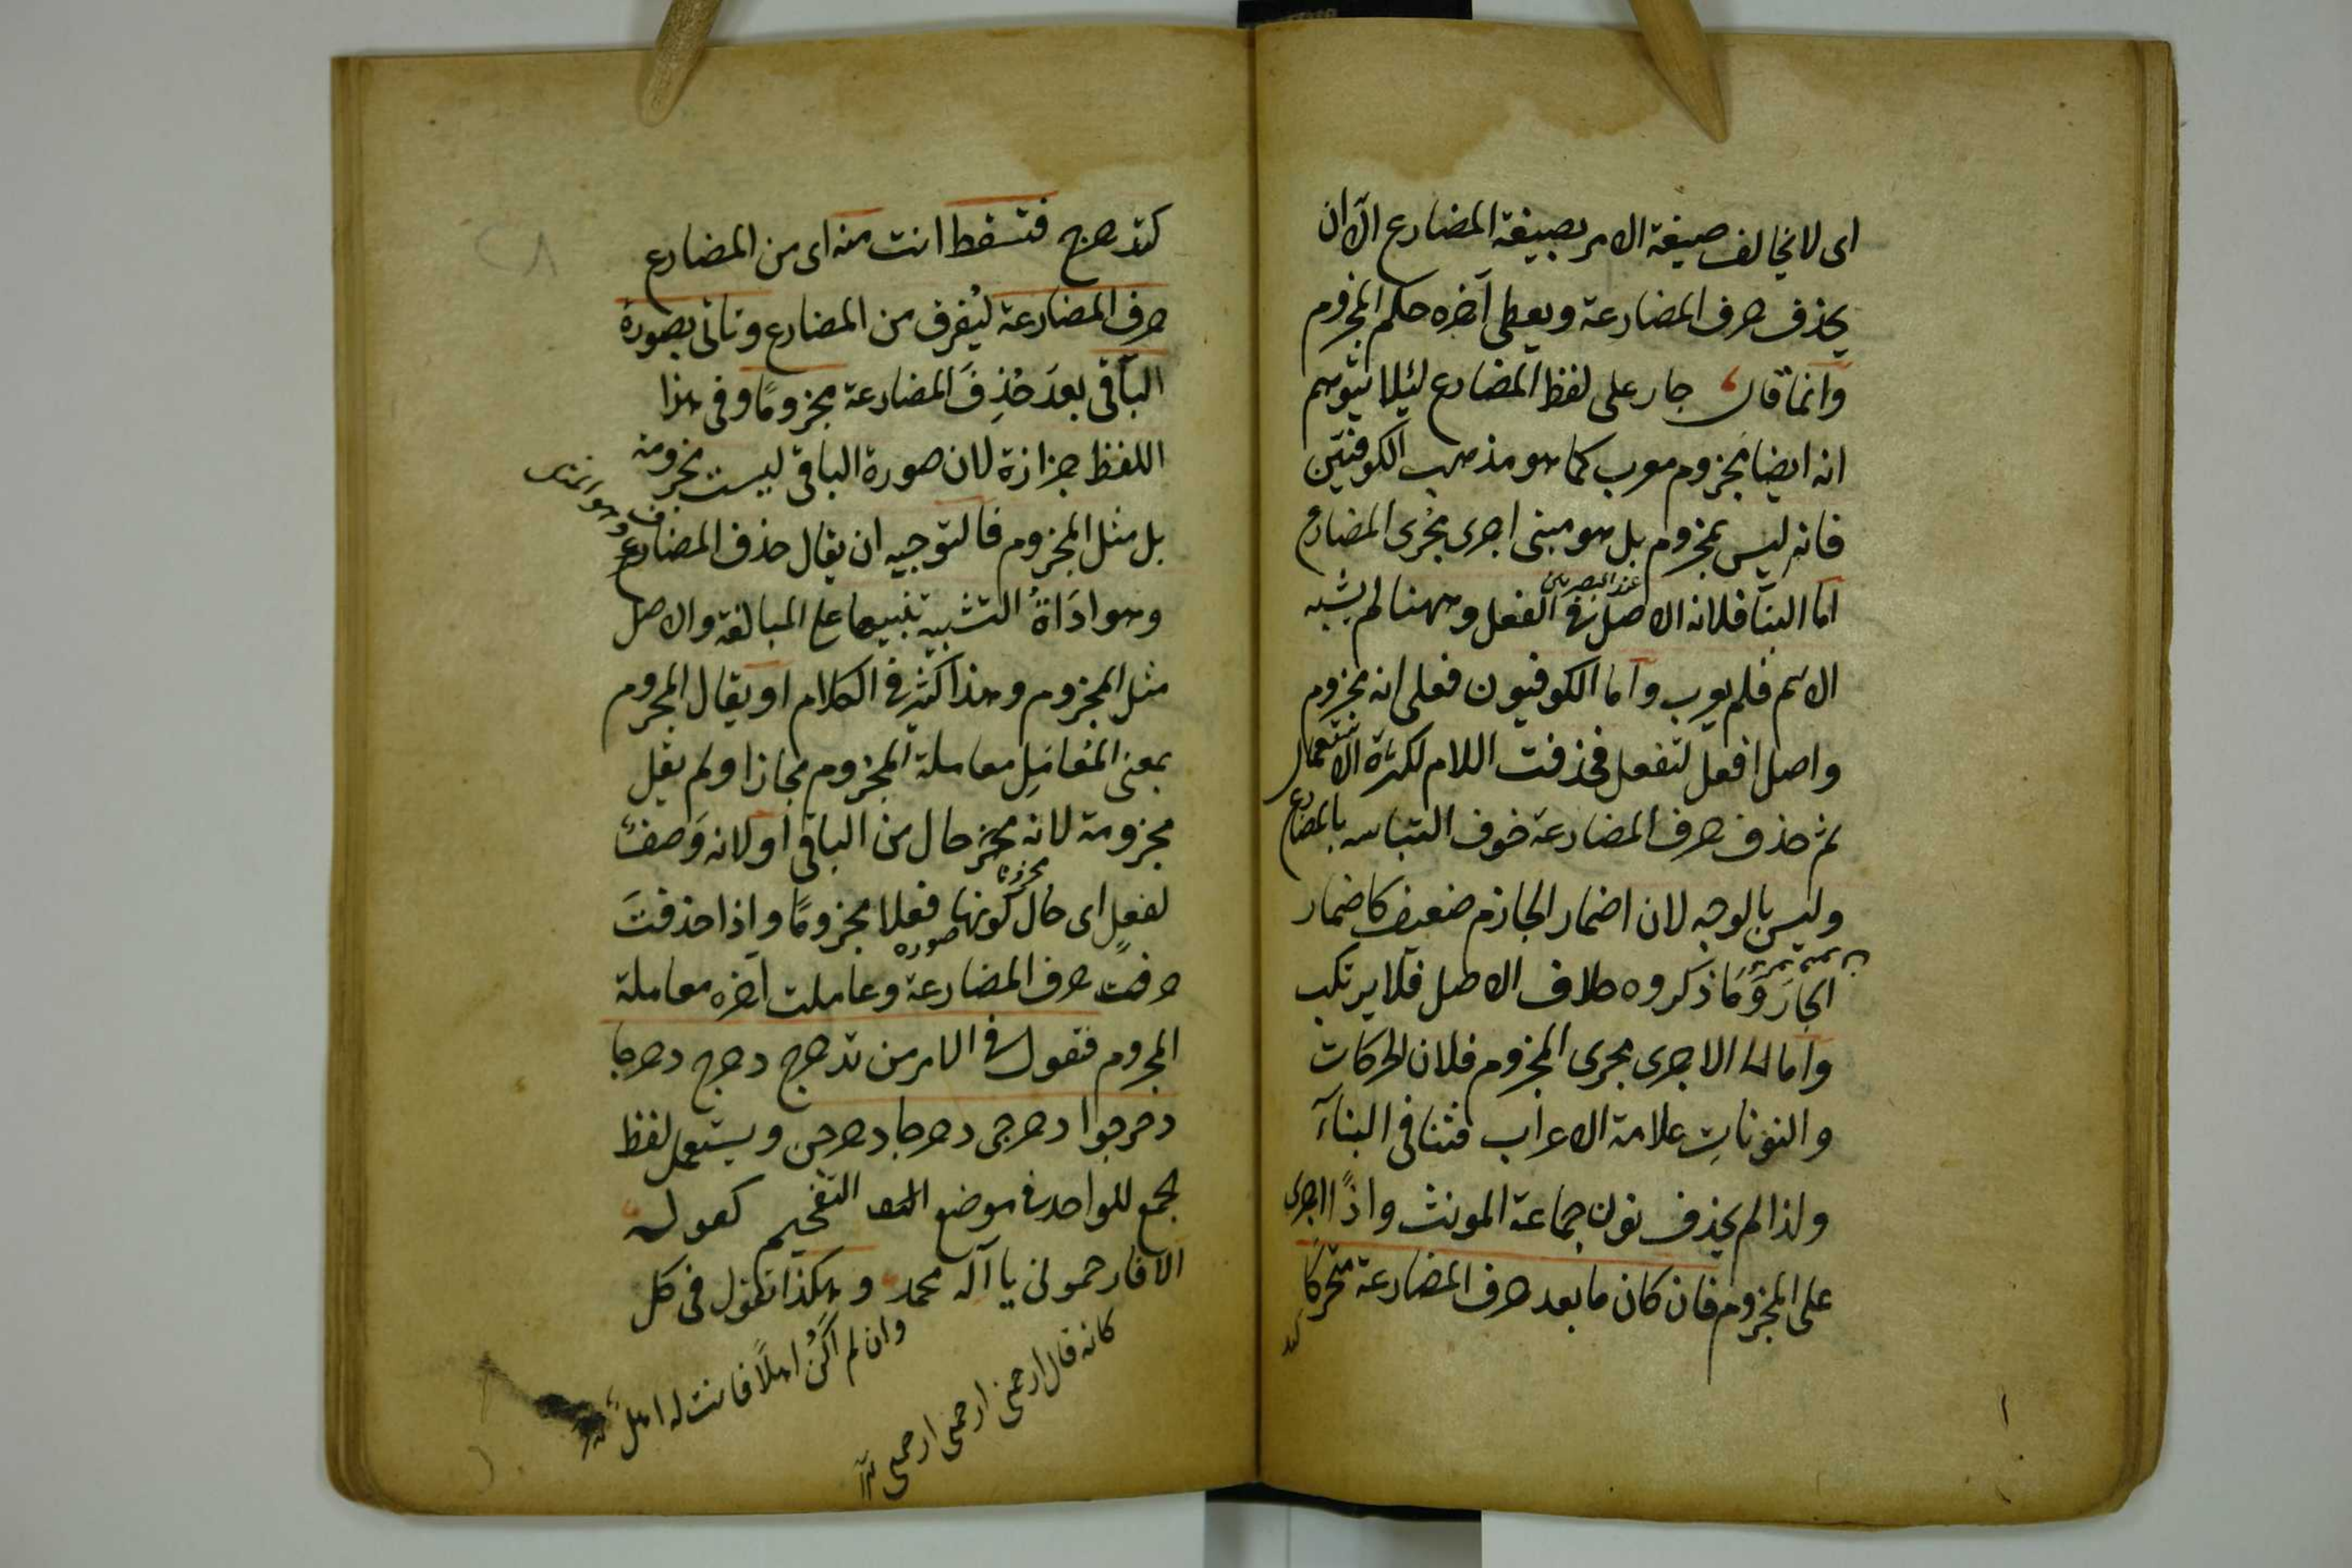 اى لا يخالف صيغة الامر بصيغة المضارع الا ان
يحذف حرف المضارعة ويعطى آخره حكم المجزوم
وانما قال جار على لفظ المضارع لئلا يتوهم
انه ايضا مجزوم معرب كما هو مذهب الكوفيّين
فانه ليس بمجزوم بل هو مبنى اجرى مجرى المضارع
عند البصريين
اما البنا فلانه الاصل فى الفعل وههنا لم يشبه
الاسم فلم يعرب واما الكوفيون فعلى انه مجزوم
واصل افعل لتفعل فحذفت اللام لكثرة الاستعمال
ثم حذف حرف المضارعة خوف التباسه بالمضارع
وليس بالوجه لان اضمار الجازم ضعيف كاضمار
الجار وَمَا ذكروه خلاف الاصل فلا يرتكب
واما الاجرى مجرى المجزوم فلان الحركات
والنونات علامة الاعراب فتنافى البنآء
ولذا لم يحذف نون جماعة المونث واذًا اجرى
على المجزوم فان كان ما بعد حرف المضارعة متحركا
كتدحرج فتسقط انت منه اى من المضارع
حرف المضارعة ليُفرق من المضارع وتاتى بصورة
الباقى بعدَ حُذِفَ المضارعة مجزومًا وفى هذا
اللفظ حزازة لان صورة الباقى ليست بمجزومة
بل مثل المجزوم فالتوجيه ان يقال حذف المضارع
وهو ادَاةُ التشبيه تنبيها على المبالغة والاصل
مثل المجزوم وهذا كثير فى الكلام او يقال المجزوم
بمعنى المعامَل معاملة المجزوم مجازا ولم يقل
مجزومة لانه حال من الباقى او لانه وَصفٌ
لفعلٍ اى حال كونها فعلا مجزومًا واذا حذفتَ
حرف المضارعة وعاملت آخره معاملة
المجزوم فتقول فى الامر من تدحرج دحرج دحرجا
دحرجوا دحرجى دحرجا دحرجن ويستعمل لفظ
الجمع للواحد فى موضع التفخيم كقوله
الا فارحمونى يا آله محمد وهكذا تقول فى كل
وان لم اكُنْ اهلًا فانت له اهلٌ
كانه قال ارحمنى ارحمنى ارحمنى